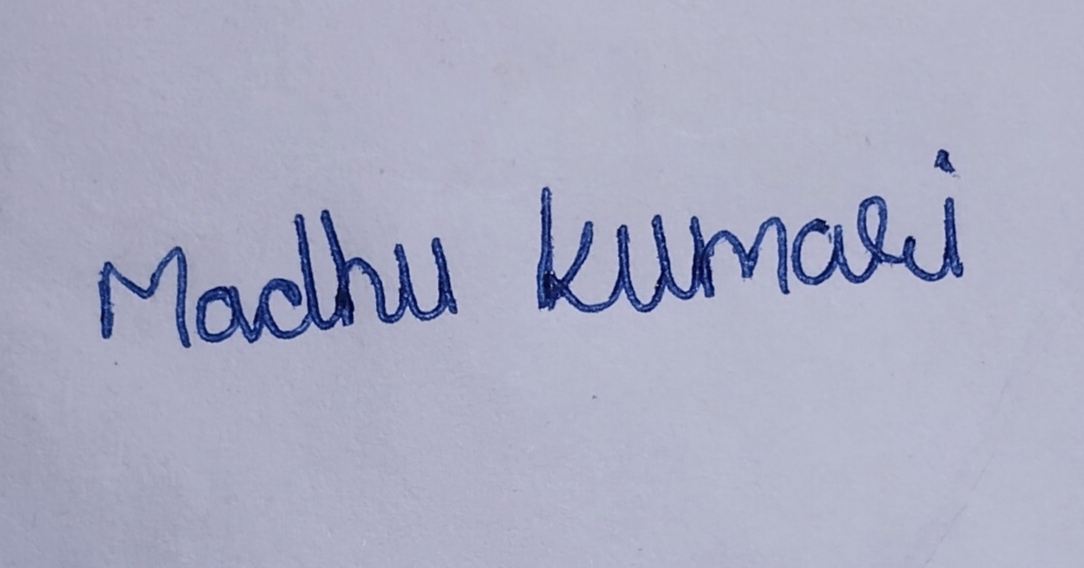 Madhu Kumari